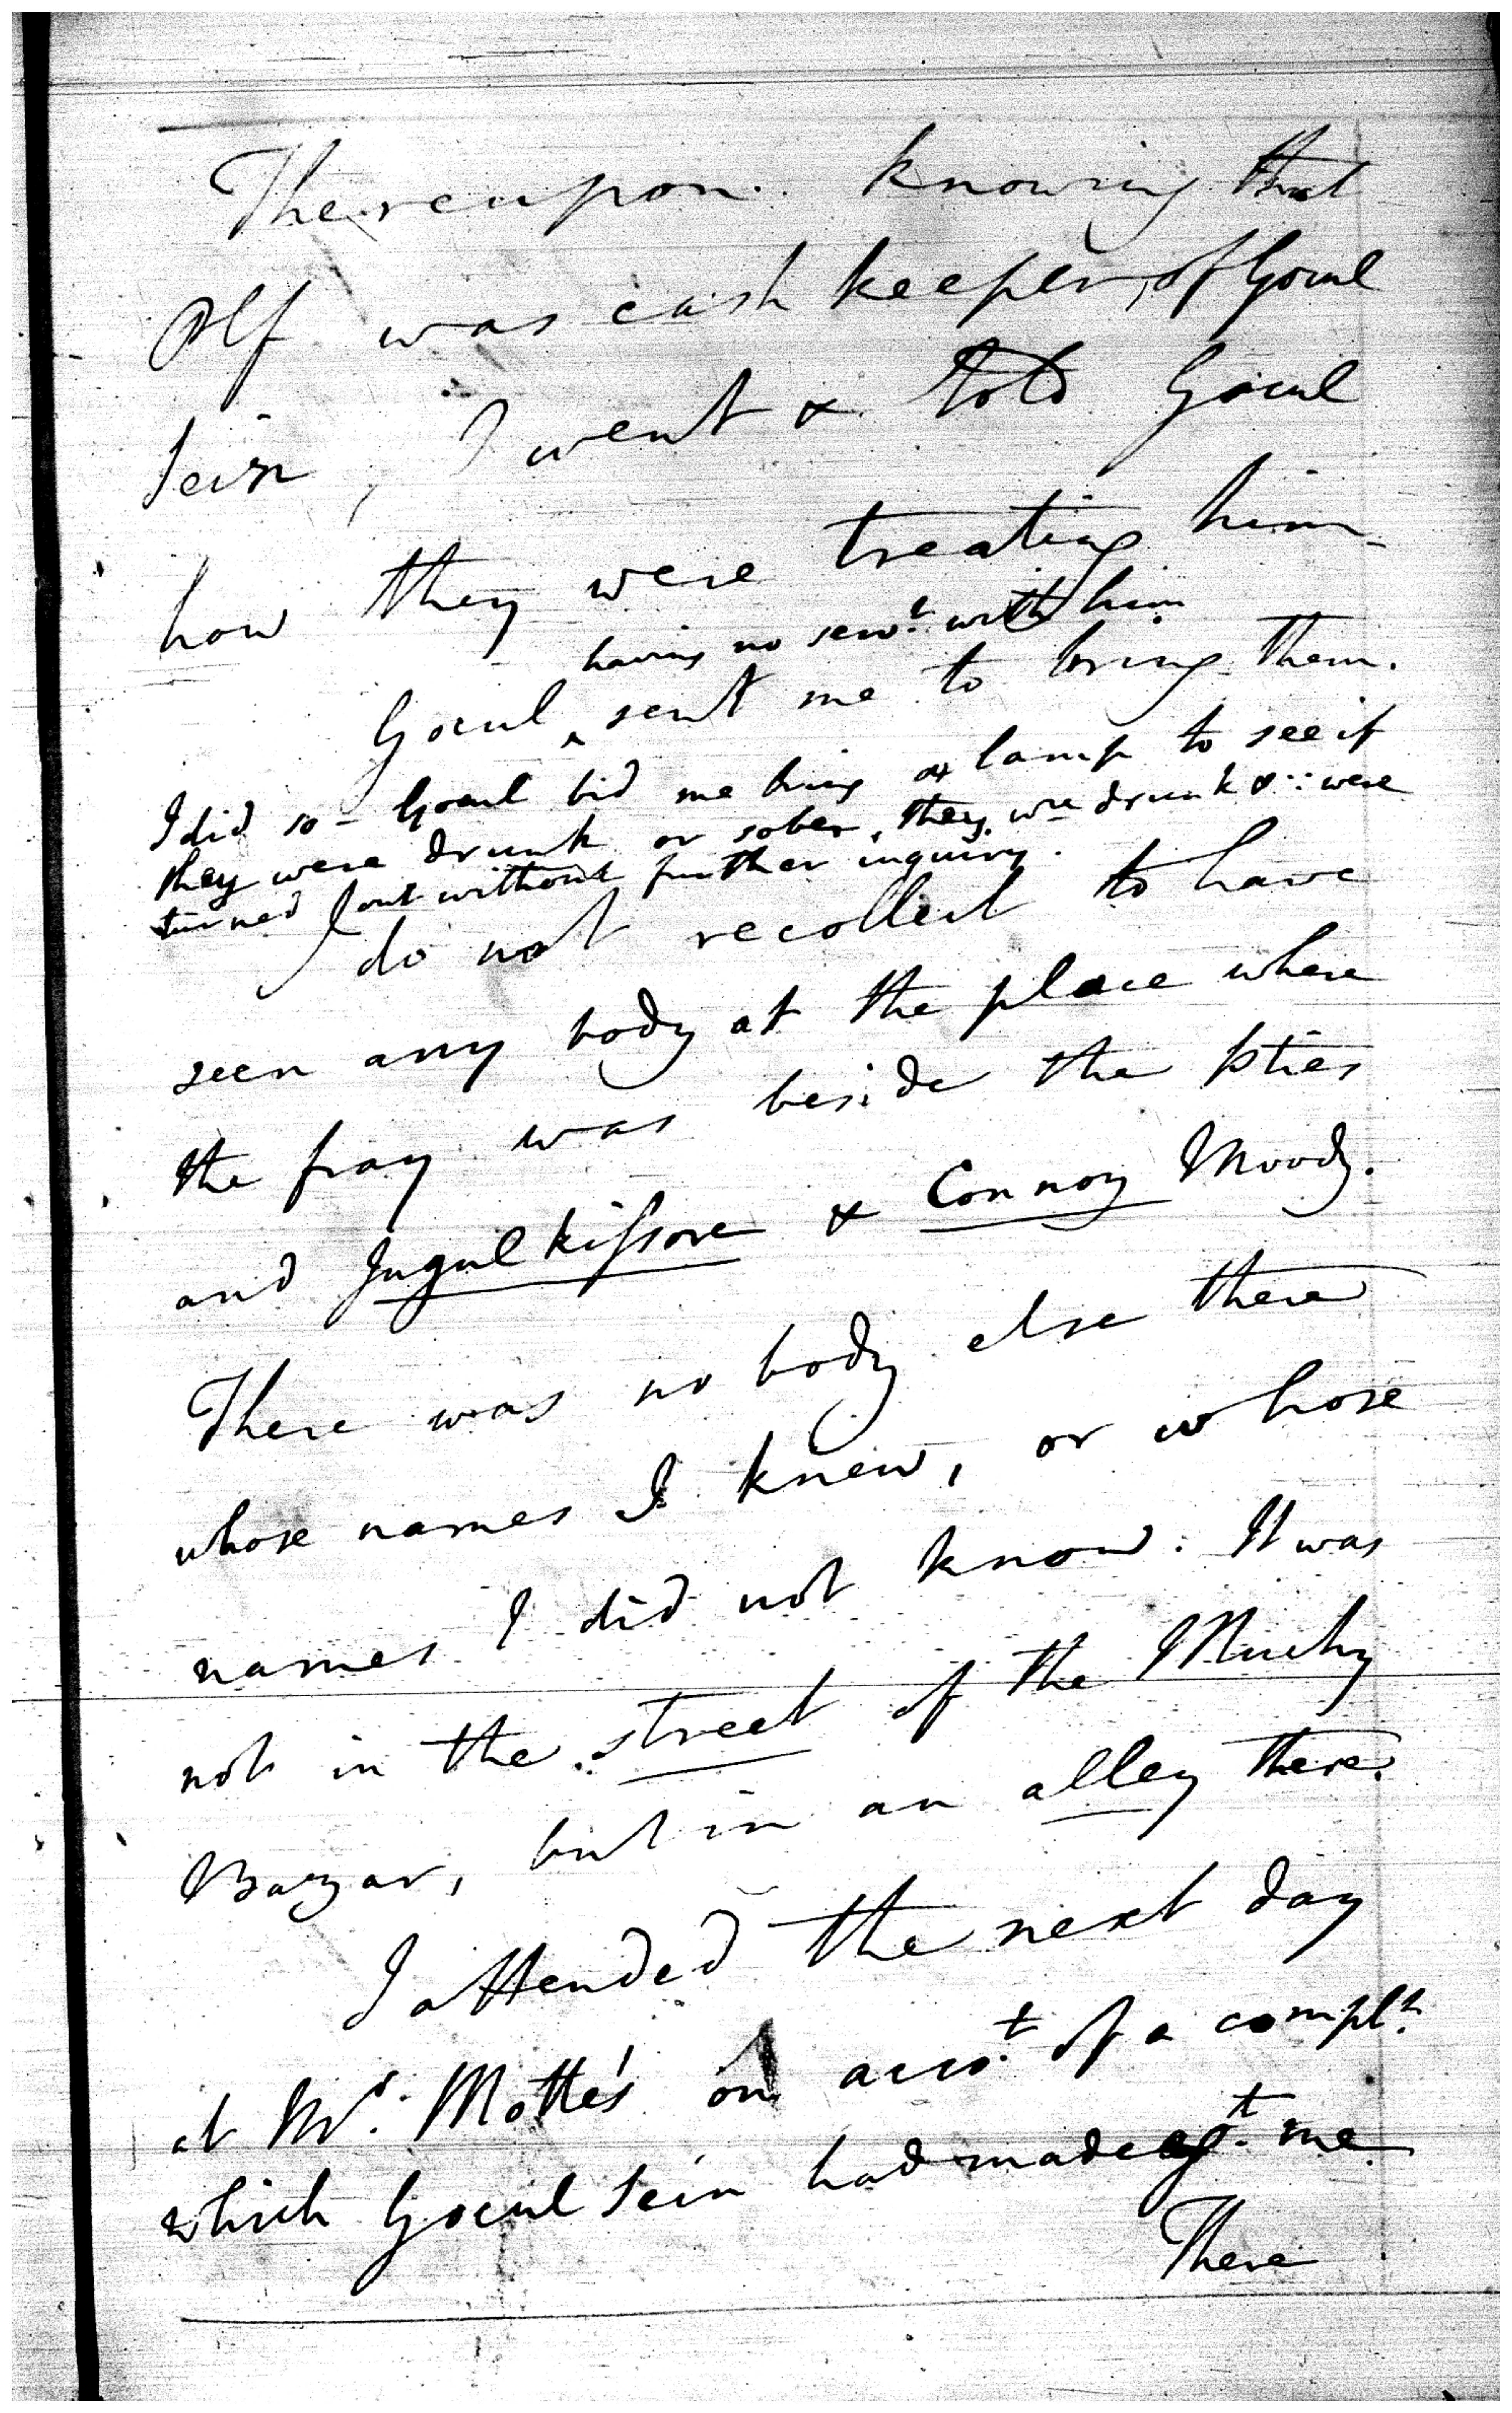 Thereupon. knowing that
Plf was cash keeper, of Gocul
Sein, I went & told Gocul
how they were treating him_
having no servt. with him
Gocul ^ sent me to bring them.
I did so - Gocul bid me bring a lamp to see if
they were drunk or sober, they wre drunk & ∵ were
turned out without further inquiry.
I do not recollect to have
seen any body at the place where
the fray was beside the pties
and Jugul Kissore & Connoy Moody.
There was no body else there
whose names I knew, or whose
names I did not know. It was
not in the street of the Muchy
Bazar, but in an alley there.
I attended the next day
at Mr. Motte's on acco.t of a complt.
which Gocul Sein had made agt. me
There